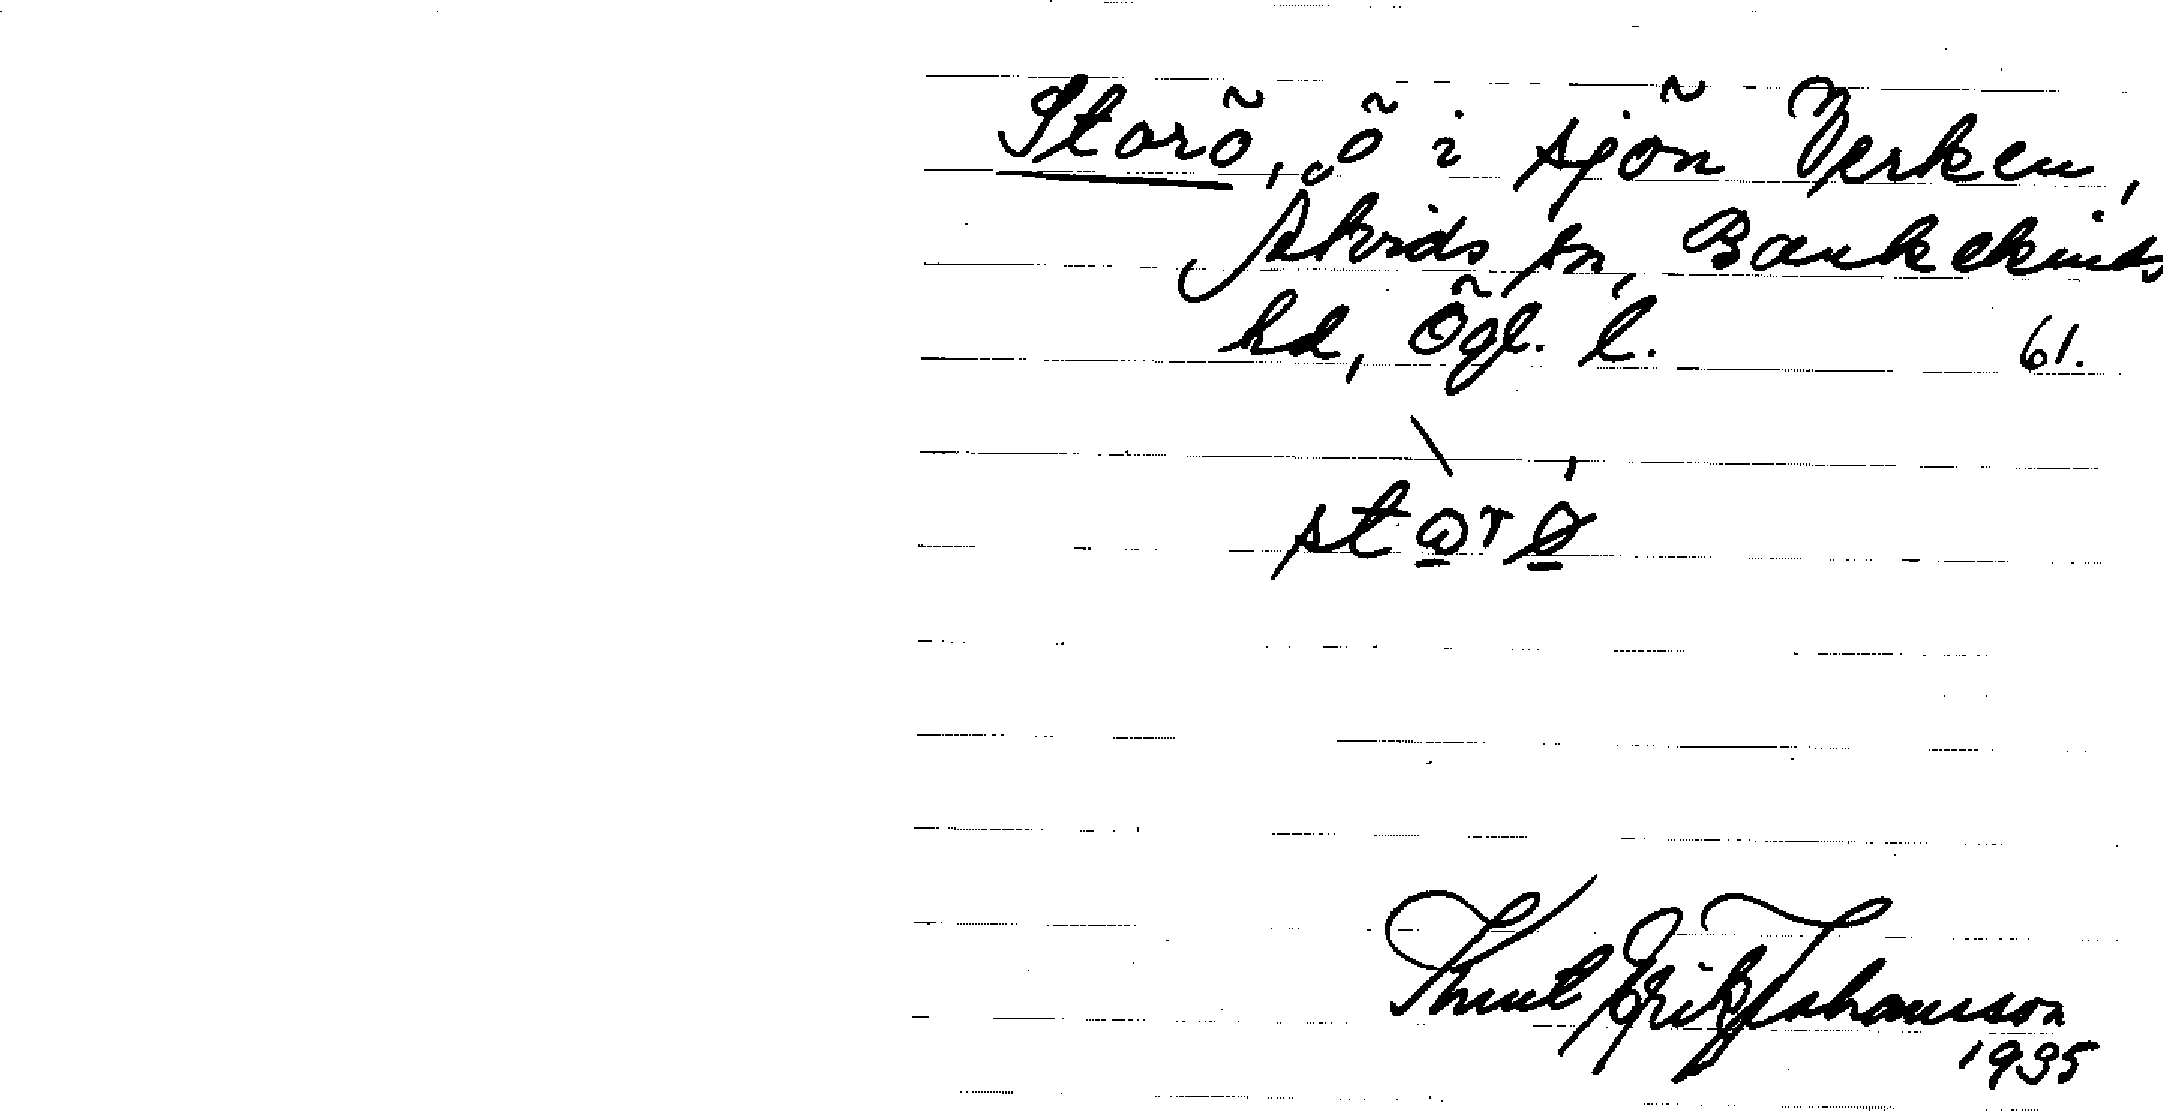 Storö, ö i sjön Yerken,
Åtvids sn, Bankekinds
hd, Ögl. l. 61.
Knut Erik Johansson
1935